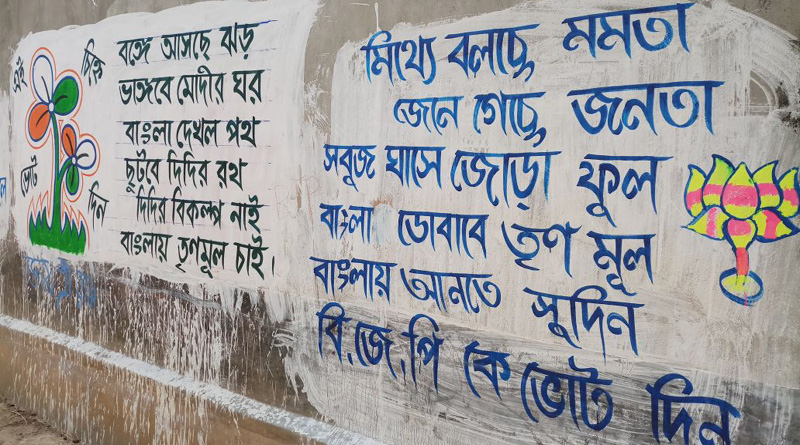 এই
চিহ্নে
ভোট
দিন
বঙ্গে আসছে ঝড়
ভাঙ্গবে মোদীর ঘর
বাংলা দেখল পথ
ছুটবে দিদির রথ
দিদির বিকল্প নাই
বাংলায় তৃণমূল চাই।
মিথ্যে বলছে, মমতা
জেনে গেছে, জনতা
সবুজ ঘাসে জোড়া ফুল
বাংলা ডোবাবে তৃণ মূল
বাংলায় আনতে সুদিন
বি.জে.পি কে ভোট দিন